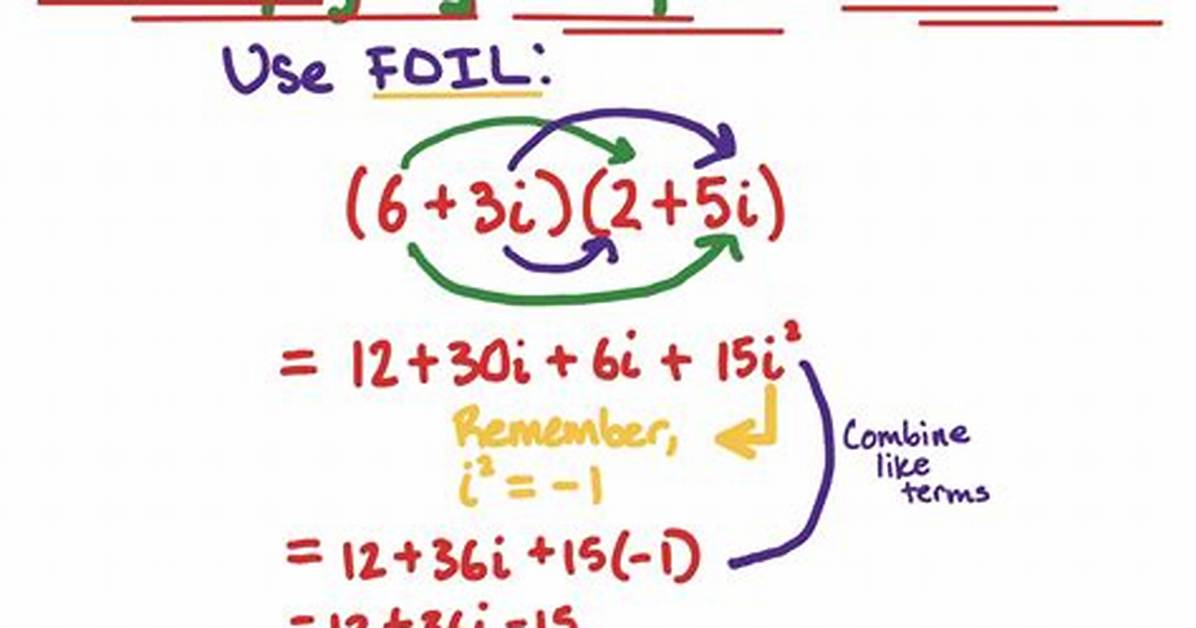 Use FOIL:
(6+3i)(2+5i)
= 12+30i + 6i + 15i²
Remember,
i² = -1
Combine
like
terms
= 12+36i +15(-1)
= 12+36i -15